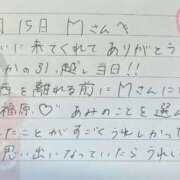 月 15日 Mさんへ
いに来てくれてありがとう
かの31、越し当日!!
を離れる前にMさんに
福原♡ あみのことを選ん
たことがすごくうれしかっ
思い出になっていたらうれし